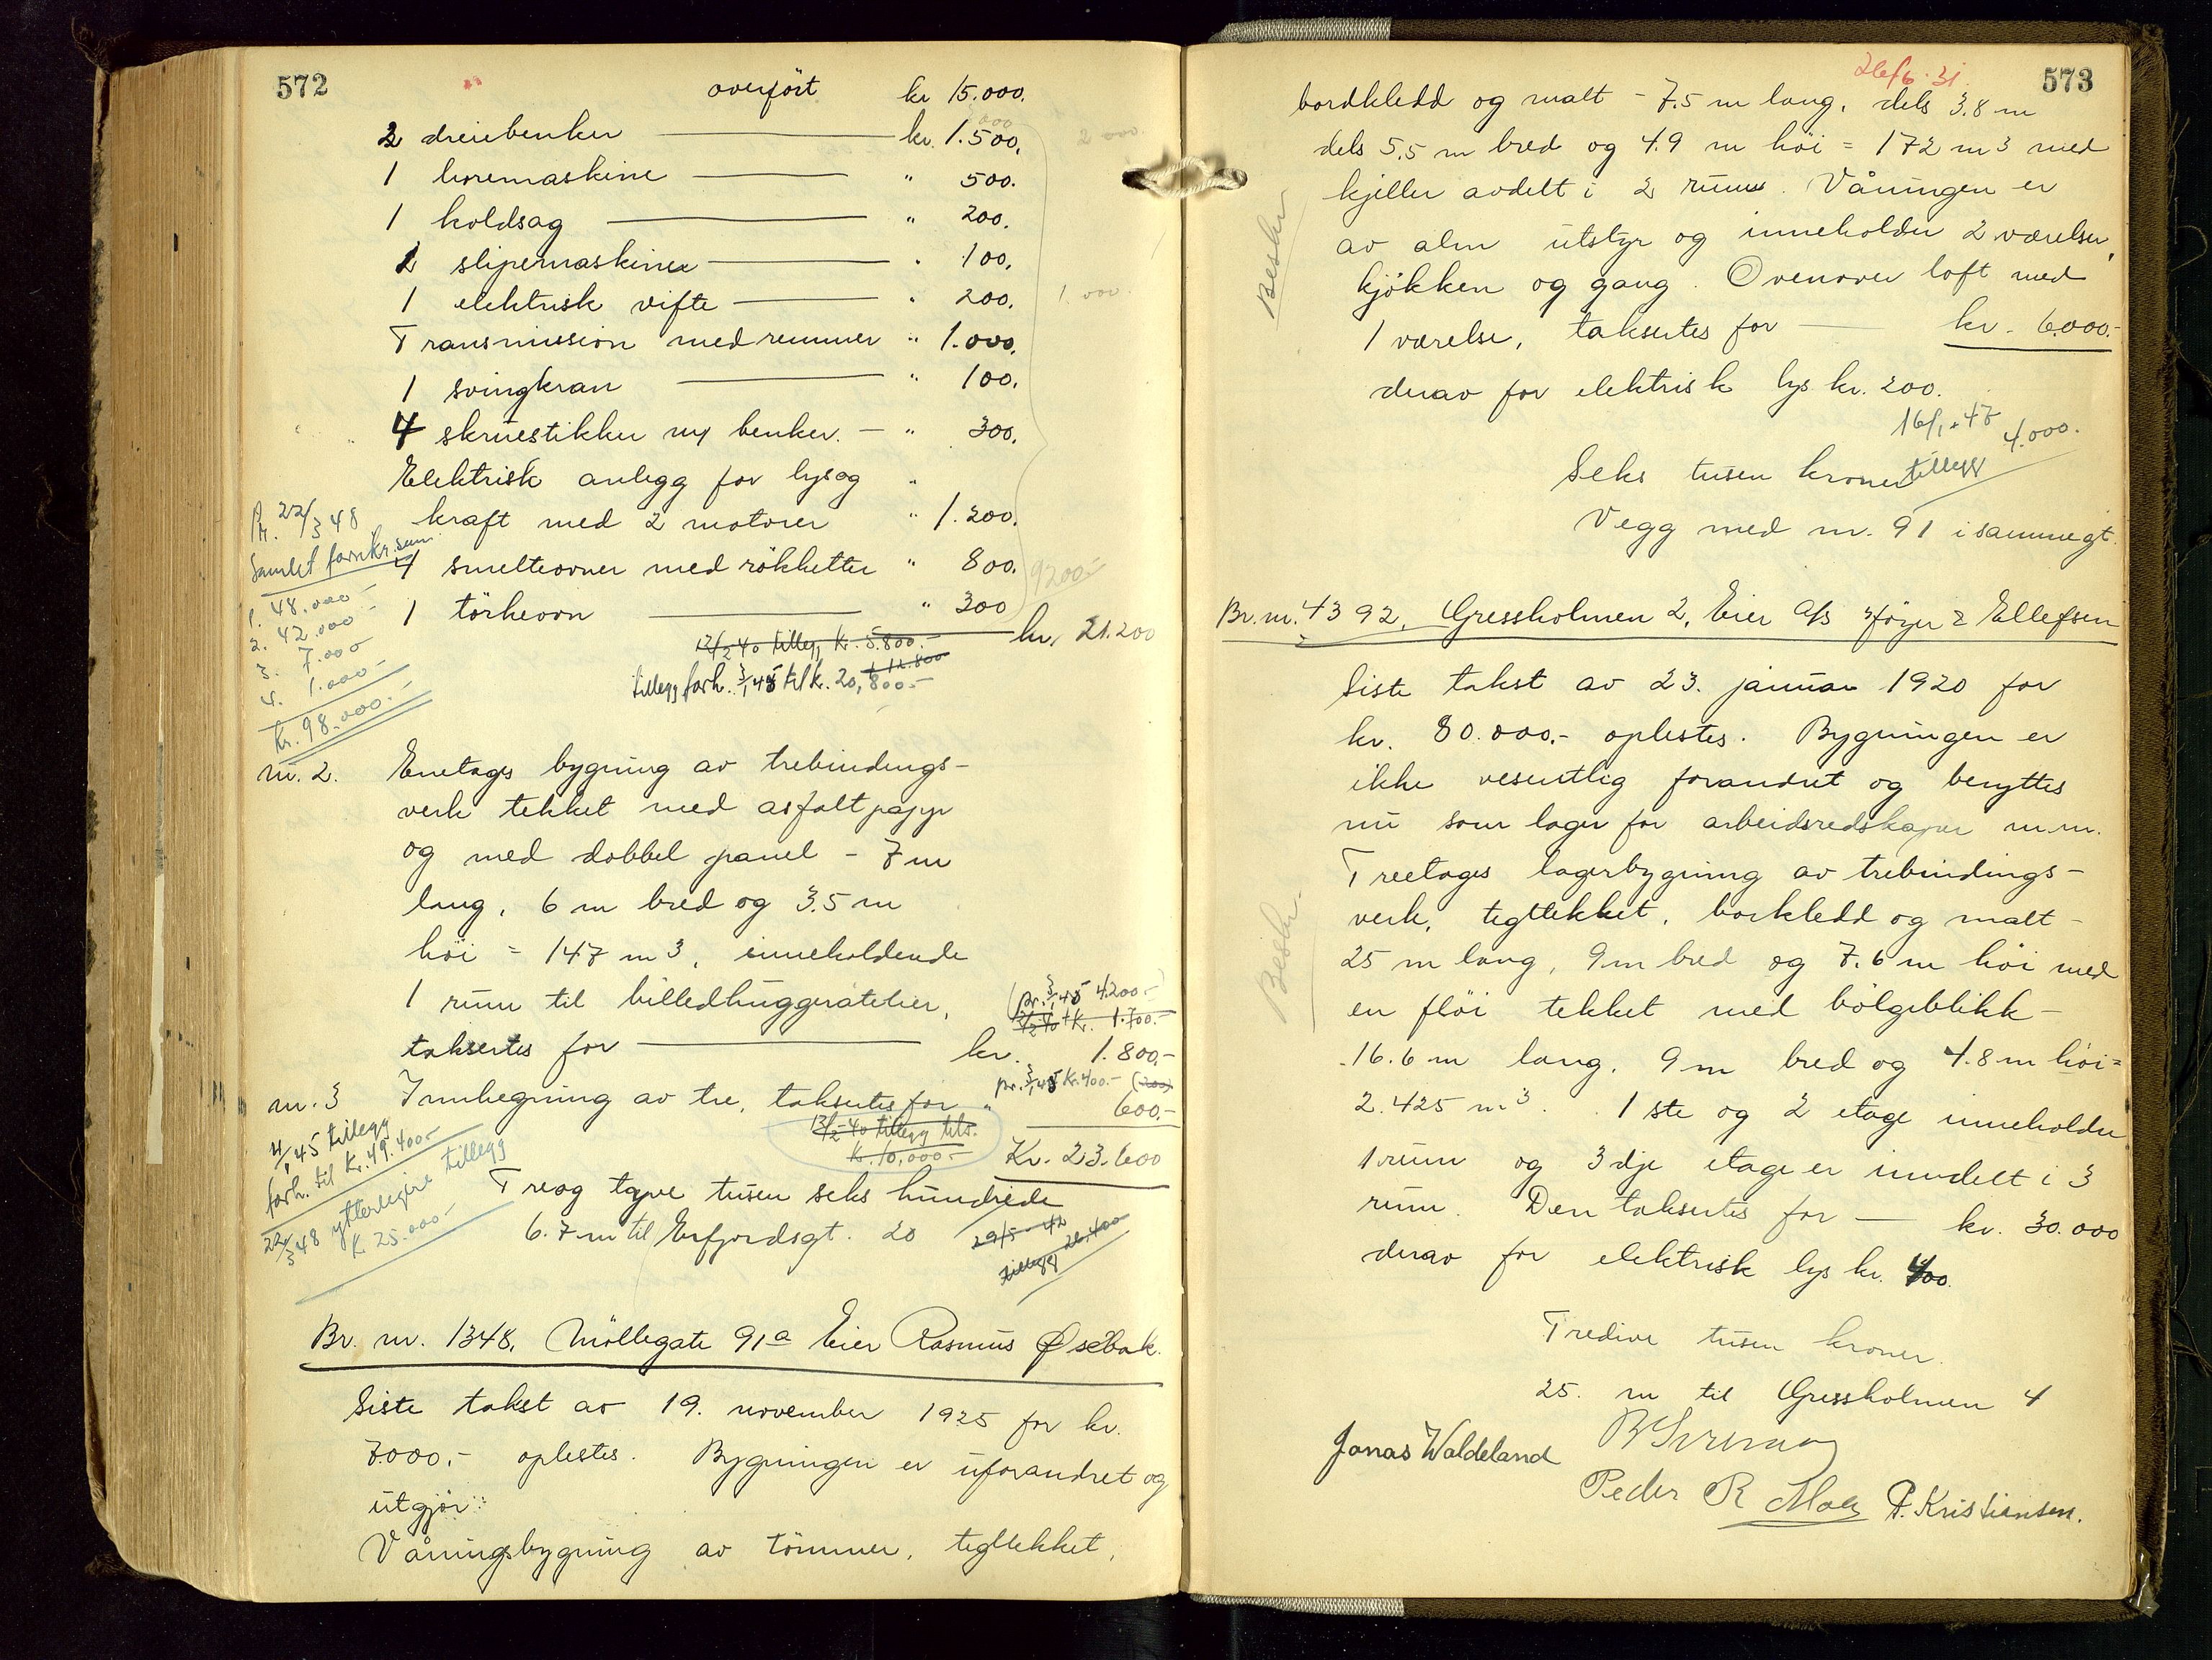 572
overført kr 15.000.
2 dreiebenker kr. 1.500.
1 boremaskine " 500.
1 koldsag " 200.
2 slipemaskiner " 100.
1 elektrisk vifte " 200.
Transmission med remmer " 1.000.
1 svingkran " 100.
4 skruestikker m/ benker. — " 300.
Elektrisk anlegg for lys og "
kraft med 2 motorer " 1.200.
4 smelteovner med rökhetter " 800.
1 törkeovn " 300
kr. 21.200
2 000.
1.000.
9200.-
12/2 40 tillegg kr. 5.800.-
+ 12.800
tillegg forh. 3/1 45 til k. 20,800.-
Pr. 22/3 48
Samlet forsikr.sum
1. 48.000-
2. 42.000-
3. 7.000
4. 1.000-
Kr. 98.000.-
nr. 2. Enetages bygning av trebindings-
verk tekket med asfaltpapp
og med dobbel panel - 7 m
lang, 6 m bred og 3.5 m
höi = 147 m3, inneholdende
1 rum til billedhuggeratelier,
(pr. 3/1 45 4.200.-)
12/2 40 + Kr. 1.700.-
taksertes for — kr. 1.800,-
pr. 3/1 45 Kr. 400.- (200)
nr. 3 Innhegning av tre, taksertes for " 600.-
12/2-40 tillegg tils.
k. 10,000.-
Kr. 23.600
4/1 45 tillegg
forh. til Kr. 49.400-
22/3 48 ytterligere tillegg
K. 25.000-
Treog tyve tusen seks hundrede
6.7 m til Erfjordsgt. 20
29/5-42
tillegg 26.400
Br. nr. 1348, Möllegate 91a Eier Rasmus Øsebak.
Siste takst av 19. november 1925 for kr.
7.000.- oplestes. Bygningen er uforandret og
utgjör:
Våningsbygning av tömmer, tegltekket,
26/6.31.
573
bordkledd og malt - 7.5 m lang, dels 3.8 m
dels 5.5 m bred og 4.9 m höi = 172 m3 med
kjeller avdelt i 2 rum. Våningen er
av alm utstyr og inneholder 2 værelser,
kjökken og gang. Ovenover loft med
1 værelse, taksertes for — kr. 6.000.-
Beskr
derav for elektrisk lys kr. 200.
16/1.47
4.000.
Seks tusen kroner tillegg
Vegg med nr. 91 i samme gt.
Br.nr. 4392, Gressholmen 2, Eier A/s Höyer & Ellefsen
Siste takst av 23. januar 1920 for
kr. 80.000.- oplestes. Bygningen er
ikke vesentlig forandret og benyttes
nu som lager for arbeidsredskaper m.m.
Treetages lagerbygning av trebindings-
verk, tegltekket, borkledd og malt -
25 m lang, 9 m bred og 7.6 m höi med
en flöi tekket med bölgeblikk -
16.6 m lang, 9 m bred og 4.8 m höi =
2.425 m3. 1ste og 2 etage inneholder
1 rum og 3dje etage er inndelt i 3
rum. Den taksertes for — kr. 30.000
Beskr.
derav for elektrisk lys kr. 400.
Tredive tusen kroner.
25. m til Gressholmen 4
Jonas Waldeland
Peder R Moe P. Kristiansen.